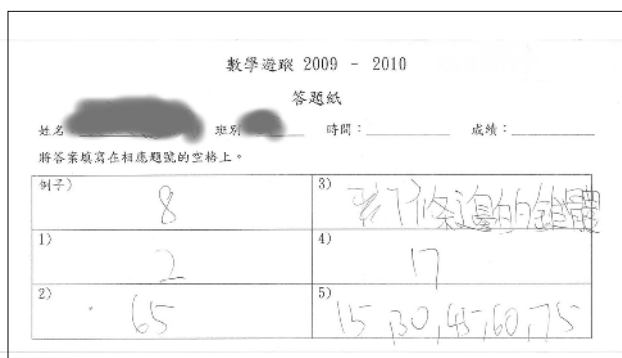 數學遊蹤 2009 - 2010
答題紙
姓名 班別 時間： 成績：
將答案填寫在相應題號的空格上。
例子） 8
3) 條邊的錐體
1) 2
4) 17
2) 65
5) 15,30,45,60,75